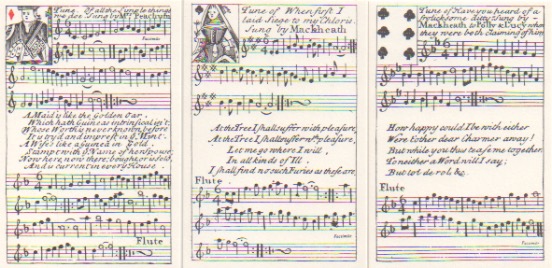 Tune of all the simple things
we doe Sung by Mrs Peachum
Facsimile
A Maid is like the Golden Oar,
Which hath Guineas intrinsical in't,
Whose Worth is never known before
It is try'd and imprest in y.e Mint.
A Wife's like a Guinea in Gold,
Stampt with y.e Name of her Spouse
Now here, now there; bought, or is sold,
And is current in every House.
Flute
Tune of When first I
laid Siege to my Chloris.
Sung by Mackheath
At the Tree I shall suffer with pleasure,
At the Tree I shall suffer w.th pleasure,
Let me go where I will,
In all kinds of Ill,
I shall find no such Furies as these are,
Flute
Facsimile
Tune of Have you heard of a
frolicksome ditty Sung by
Mackheath to Polly & Lucy when
they were both claiming of him
How happy could I be with either
Were t'other dear Charmer away!
But while you thus teaze me together,
To neither a Word will I say;
But tol de rol: &c
Flute
Facsimile